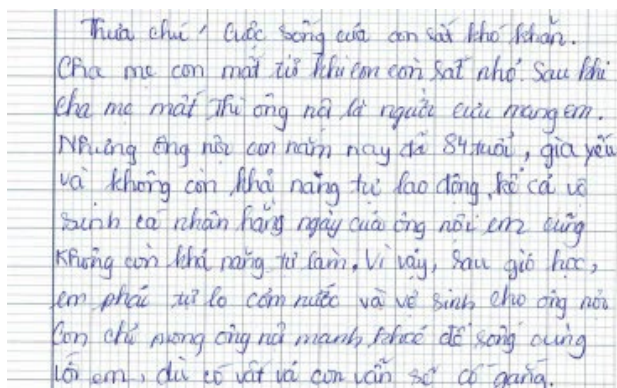 Thưa chú, Cuộc sống của con sất khó khăn.
Cha mẹ con mất từ khi con còn sất nhỏ. Sau khi
cha mẹ mất thì ông nội là người cưu mang em.
Nhưng ông nội con năm nay đã 84 tuổi, già yếu
và không còn khả năng tự lao động, kể cả vệ
sinh cá nhân hằng ngày của ông nội em cũng
không còn khả năng tự làm. Vì vậy, sau giờ học,
em phải tự lo cơm nước và vệ sinh cho ông nội
Con chỉ mong ông nội mạnh khoẻ để sống cùng
với em, dù có vất vả con vẫn sẽ cố gắng.